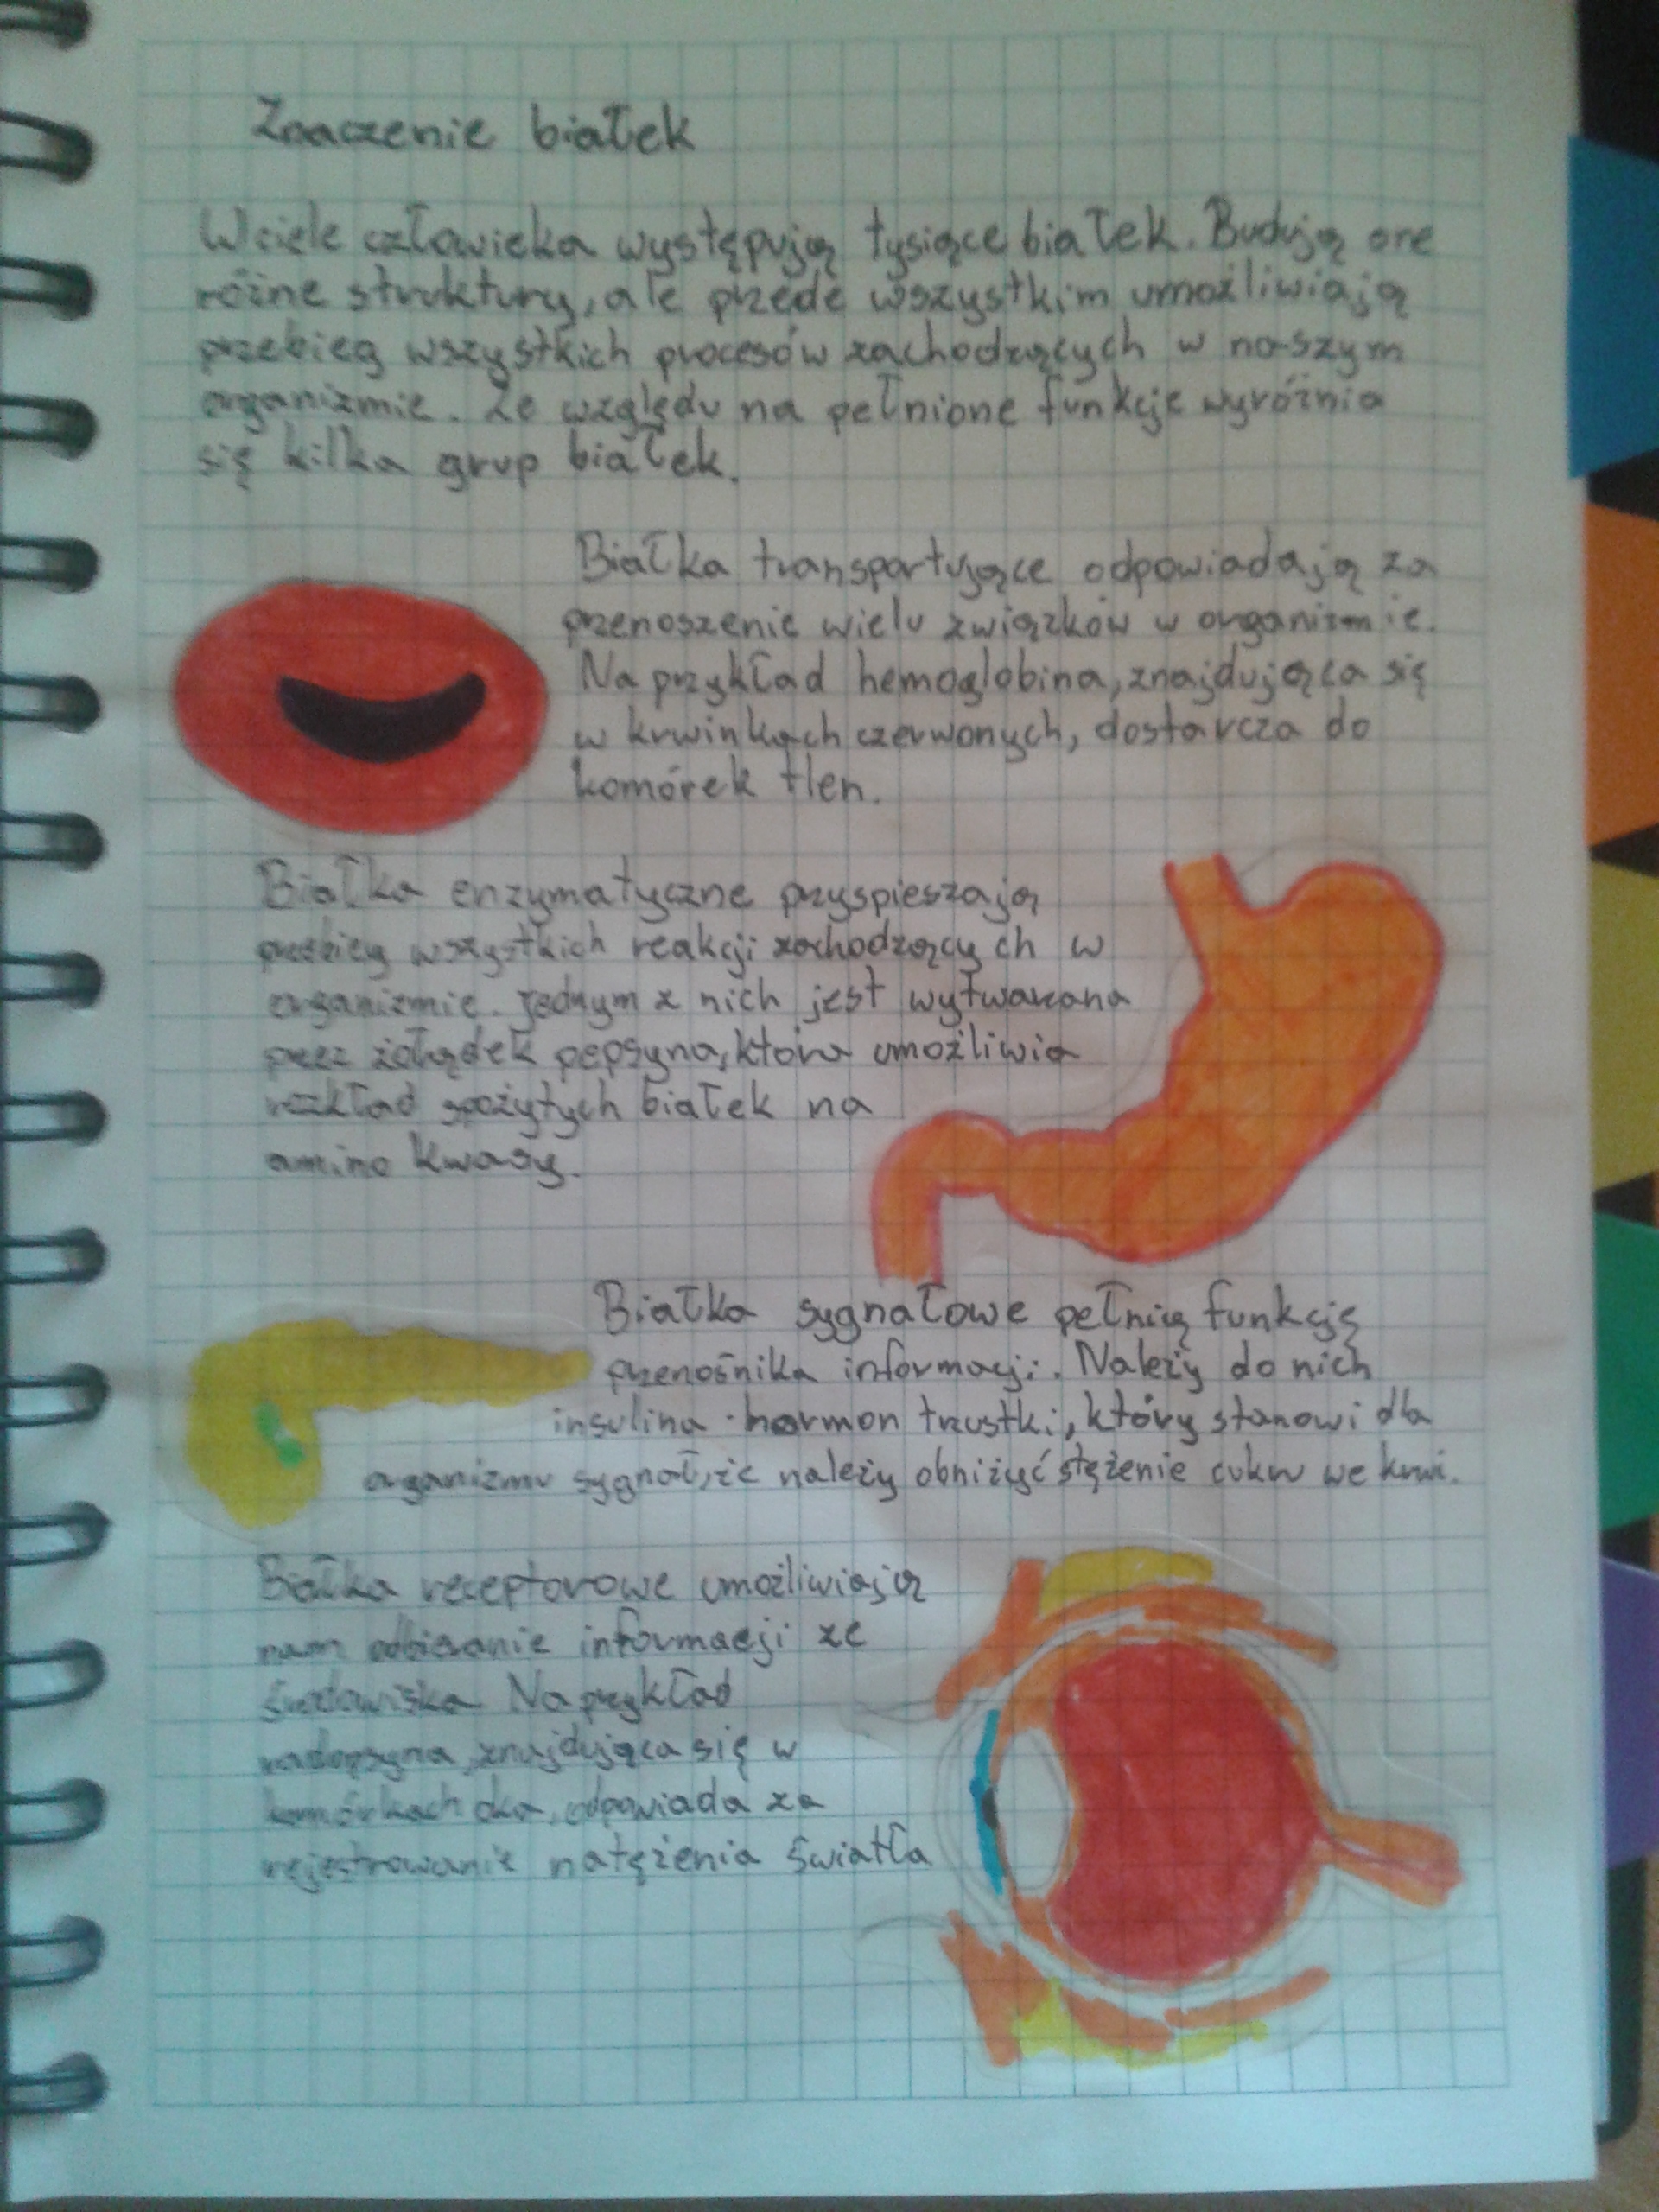 Znaczenie białek
W ciele człowieka występują tysiące białek. Budują one
różne struktury, ale przede wszystkim umożliwiają
przebieg wszystkich procesów zachodzących w naszym
organizmie. Ze względu na pełnione funkcje wyróżnia
się kilka grup białek.
Białka transportujące odpowiadają za
przenoszenie wielu związków w organizmie.
Na przykład hemoglobina, znajdująca się
w krwinkach czerwonych, dostarcza do
komórek tlen.
Białka enzymatyczne przyspieszają
przebieg wszystkich reakcji zachodzących w
organizmie. Jednym z nich jest wytwarzana
przez żołądek pepsyna, która umożliwia
rozkład spożytych białek na
amino kwasy.
Białka sygnałowe pełnią funkcję
przenośnika informacji. Należy do nich
insulina - hormon trzustki, który stanowi dla
organizmu sygnał, że należy obniżyć stężenie cukru we krwi.
Białka receptorowe umożliwiają
nam odbieranie informacji ze
środowiska. Na przykład
znajdująca się w
komórkach oka, odpowiada za
rejestrowanie natężenia światła